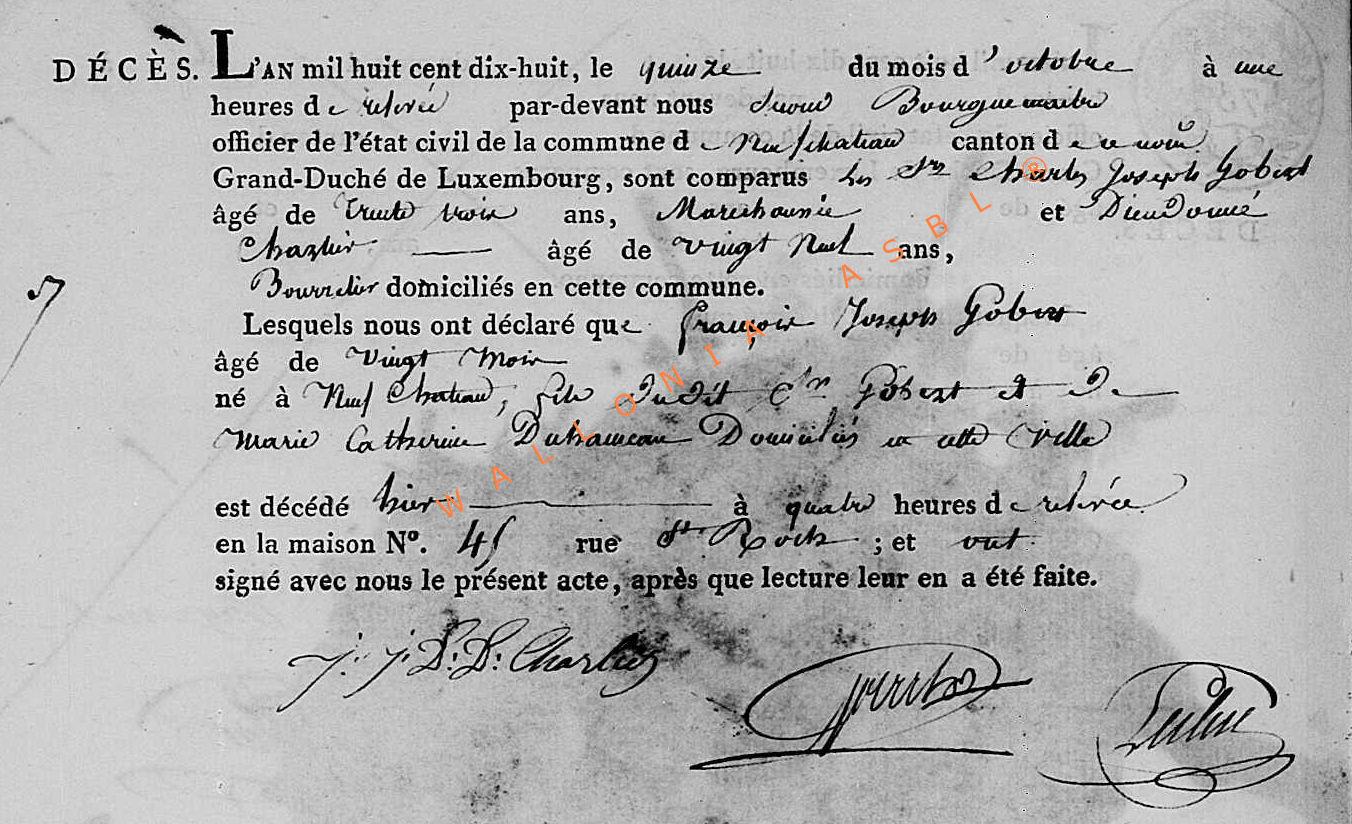 DÉCÈS. L'AN mil huit cent dix-huit, le quinze du mois d'octobre à une
heures de relevée par-devant nous Bourguemaitre
officier de l'état civil de la commune de Neufchateau canton de ce nom
Grand-Duché de Luxembourg, sont comparus les Srs Charles Joseph Gobert
âgé de trente trois ans, Marechaussée et Dieudonné
Chazlier âgé de vingt Neuf ans,
Bourrelier domiciliés en cette commune.
Lesquels nous ont déclaré que françois Joseph Gobert
âgé de vingt Mois
né à Neuf Chateau, fils dudit Sr Gobert et De
Marie Catherine Duhameau Domiciliés en cette Ville
est décédé hier à quatre heures de relevée
en la maison N°. 45 rue St. Roch ; et ont
signé avec nous le présent acte, après que lecture leur en a été faite.
J. J. D. D. Charlier
WALLONIA ASBL ®